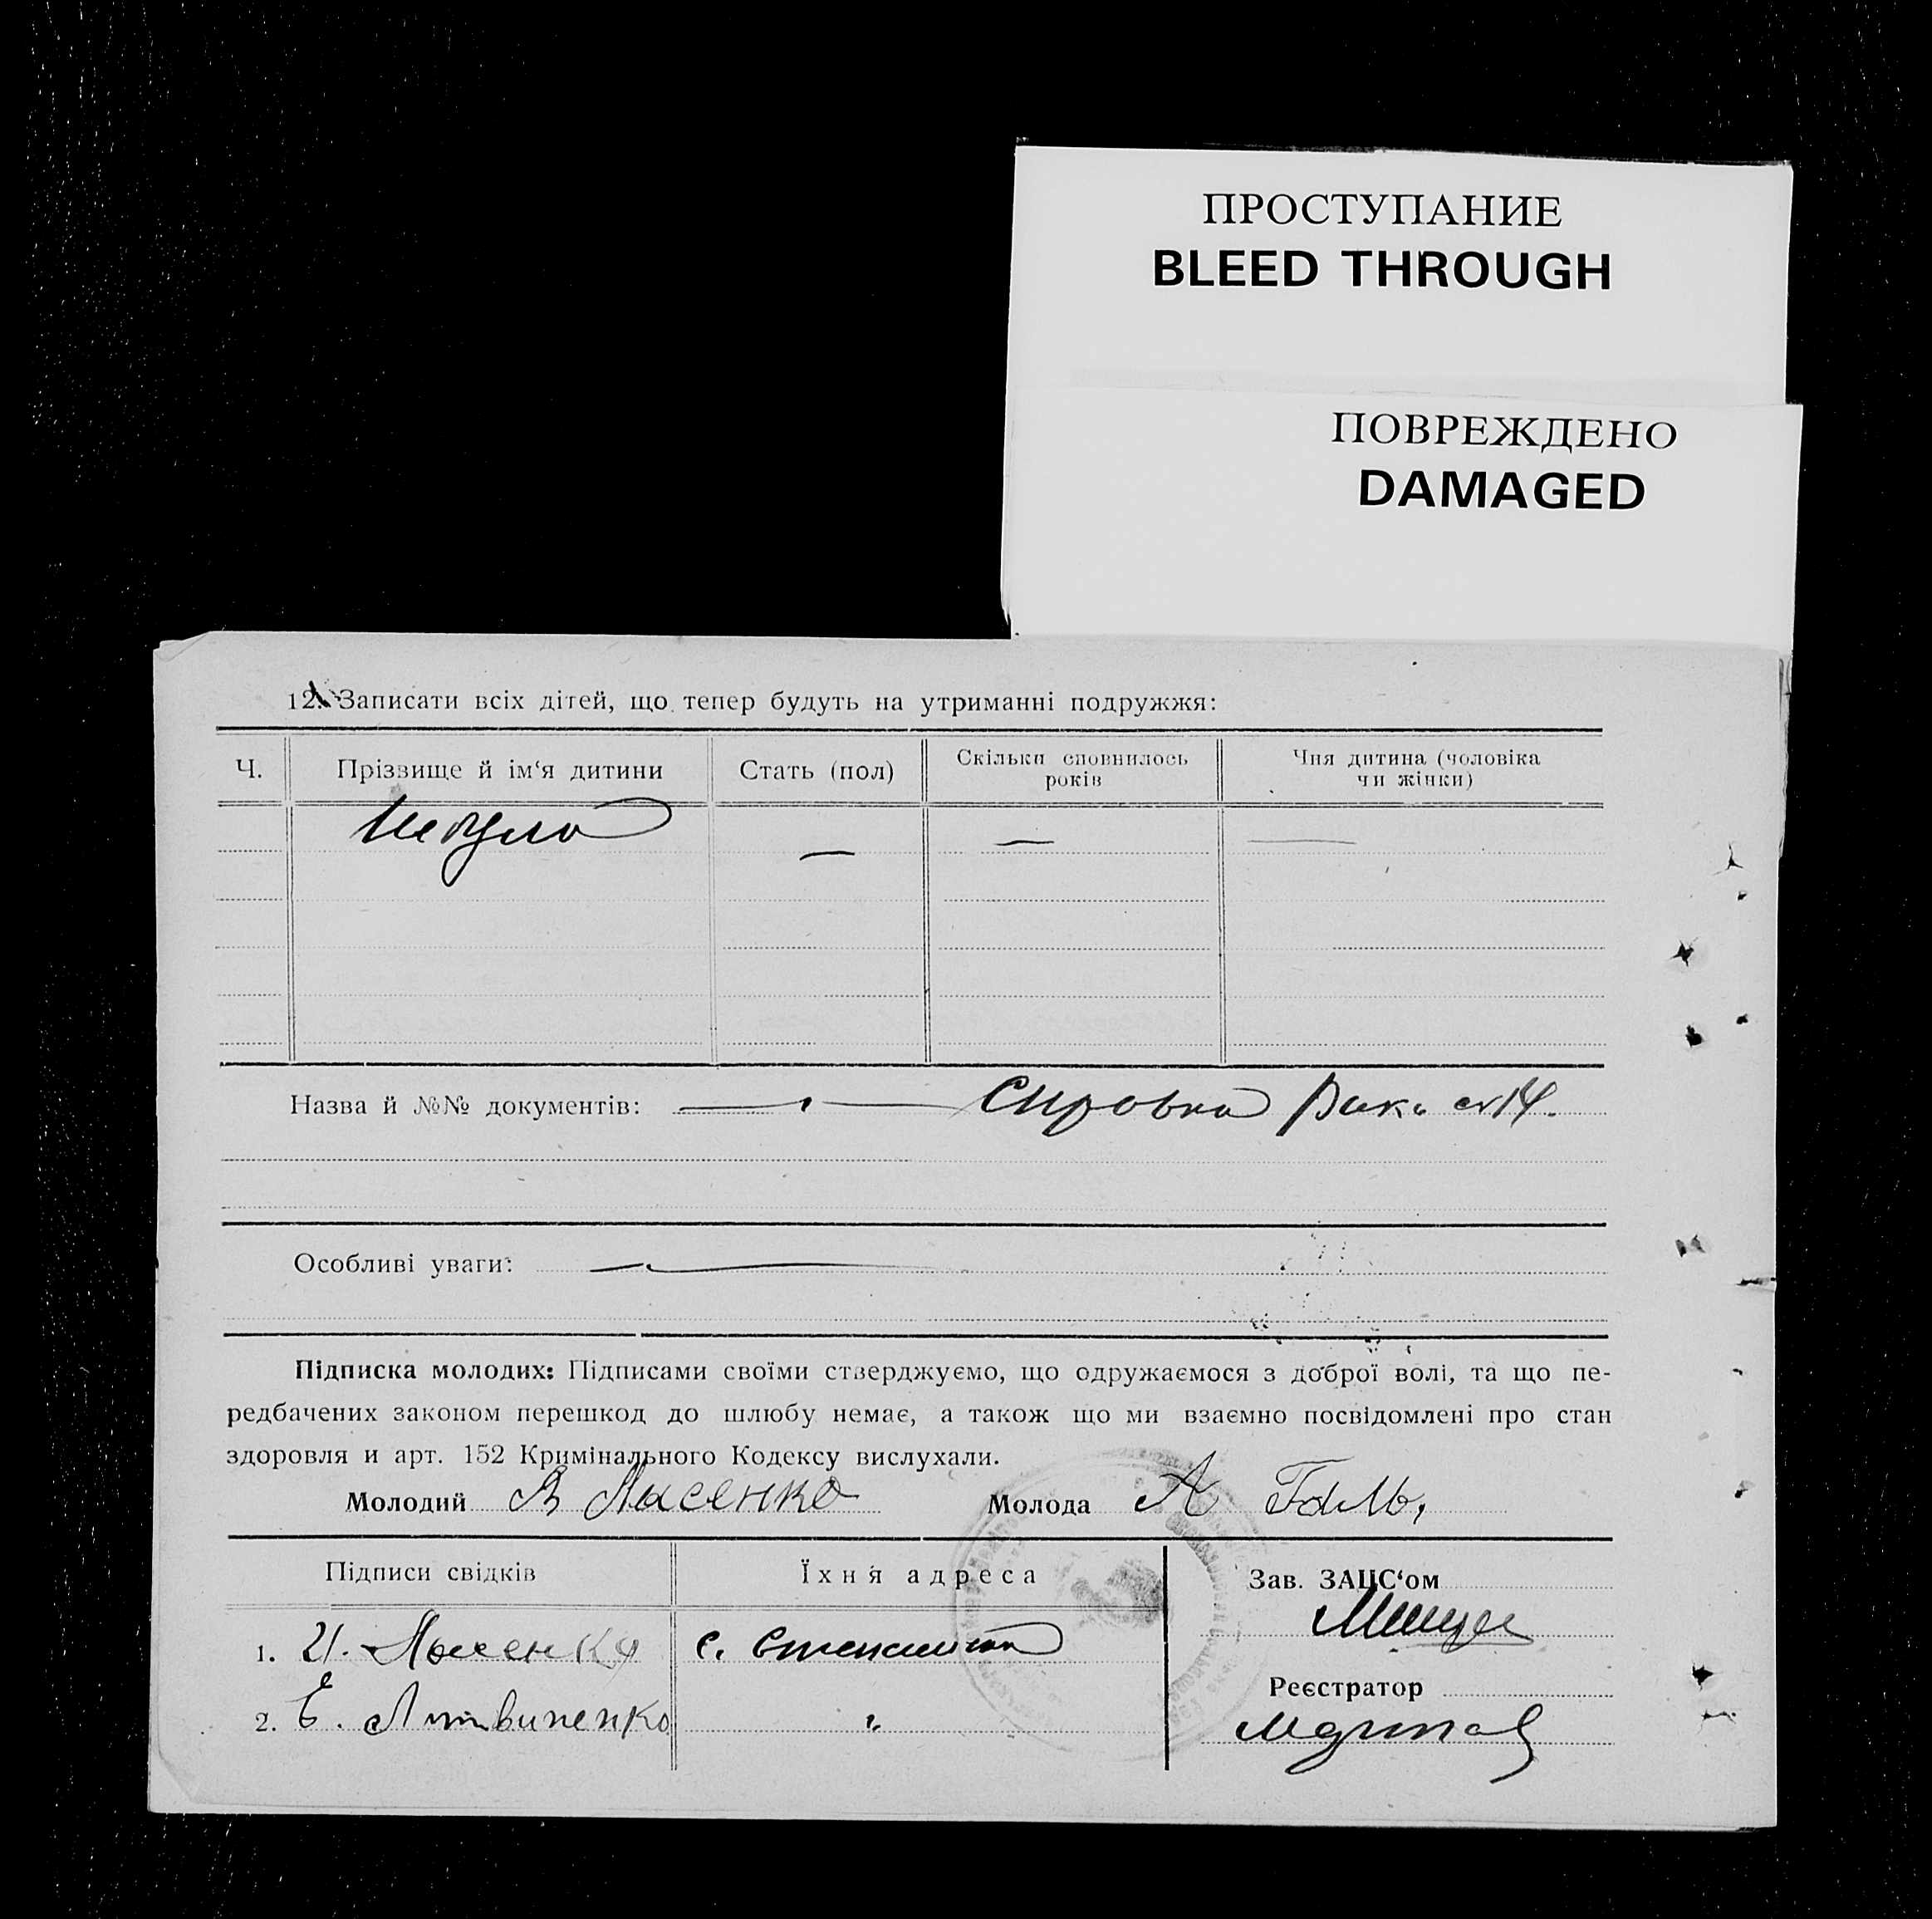 ПРОСТУПАНИЕ
BLEED THROUGH
ПОВРЕЖДЕНО
DAMAGED
12. Записати всіх дітей, що тепер будуть на утриманні подружжя:
Ч. Прізвище й ім‘я дитини Стать (пол) Скільки сповнилось років Чия дитина (чоловіка чи жінки)
— — —
Назва й №№ документів: — Справка
Особливі уваги: —
Підписка молодих: Підписами своїми стверджуємо, що одружаємося з доброї волі, та що пе-
редбачених законом перешкод до шлюбу немає, а також що ми взаємно посвідомлені про стан
здоровля и арт. 152 Кримінального Кодексу вислухали.
Молодий В Лисенко Молода А Галь
Підписи свідків Їхня адреса Зав. ЗАЦС‘ом
1. И. Лисенко с.
Реєстратор
2. Е. Литвиненко "